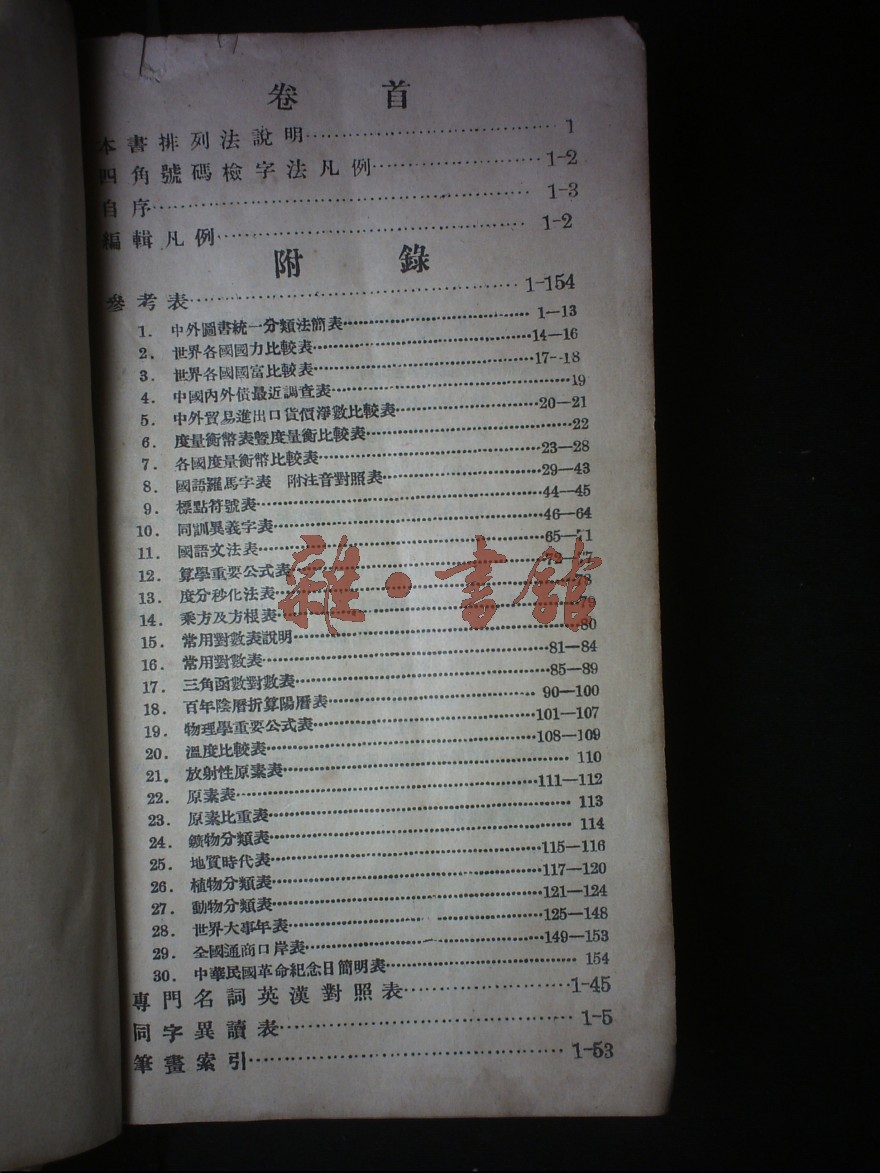 卷 首
本書排列法說明 1
四角號碼檢字法凡例 1-2
自序 1-3
編輯凡例 1-2
附 錄
參考表 1-154
1. 中外圖書統一分類法簡表 1—13
2. 世界各國國力比較表 14—16
3. 世界各國國富比較表 17--18
4. 中國內外債最近調查表 19
5. 中外貿易進出口貨價淨數比較表 20—21
6. 度量衡幣表暨度量衡比較表 22
7. 各國度量衡幣比較表 23—28
8. 國語羅馬字表 附注音對照表 29—43
9. 標點符號表 44—45
10. 同訓異義字表 46—64
11. 國語文法表 65—71
12. 算學重要公式表 72—77
13. 度分秒化法表 78
14. 乘方及方根表 79
15. 常用對數表說明 80
16. 常用對數表 81—84
17. 三角函數對數表 85—89
18. 百年陰曆折算陽曆表 90—100
19. 物理學重要公式表 101—107
20. 溫度比較表 108—109
21. 放射性原素表 110
22. 原素表 111—112
23. 原素比重表 113
24. 鑛物分類表 114
25. 地質時代表 115—116
26. 植物分類表 117—120
27. 動物分類表 121—124
28. 世界大事年表 125—148
29. 全國通商口岸表 149—153
30. 中華民國革命紀念日簡明表 154
專門名詞英漢對照表 1-45
同字異讀表 1-5
筆畫索引 1-53
雜·書館